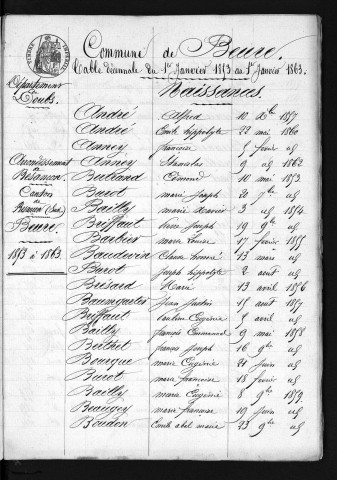 Commune de Beure.
Table décennale du 1er Janvier 1853 au 1er Janvier 1863.
Département
Doubs
Arrondissement
de
Besançon
Canton
de
Besançon (Sud)
Beure
1853 à 1863
Naissances
André Alfred 10 Xbre 1857
André Emile hippolyte 22 mai 1860
Anney françoise 5 février id
Anney Stanislas 9 id 1862
Bertrand Edmond 10 mai 1853
Bavot marie Joseph 20 7bre id
Bailly marie Xavier 3 id 1854
Briffaut Pierre Joseph 19 9bre id
Barbier marie Louise 17 février 1855
Baudevin Claude honoré 13 mars id
Barot Joseph hippolyte 2 août id
Besard Marie 13 avril 1856
Baumgarter Jean Justin 15 août 1857
Briffaut Pauline Eugénie 5 avril id
Bailly françois Emmanuel 9 mai 1858
Berthet francis Joseph 16 9bre id
Bourque marie Eugénie 21 juin id
Bavot marie françoise 18 février id
Bailly marie Eugénie 8 9bre 1859
Beaugey marie françoise 19 juin id
Boudon Emile abel marie 23 9bre id